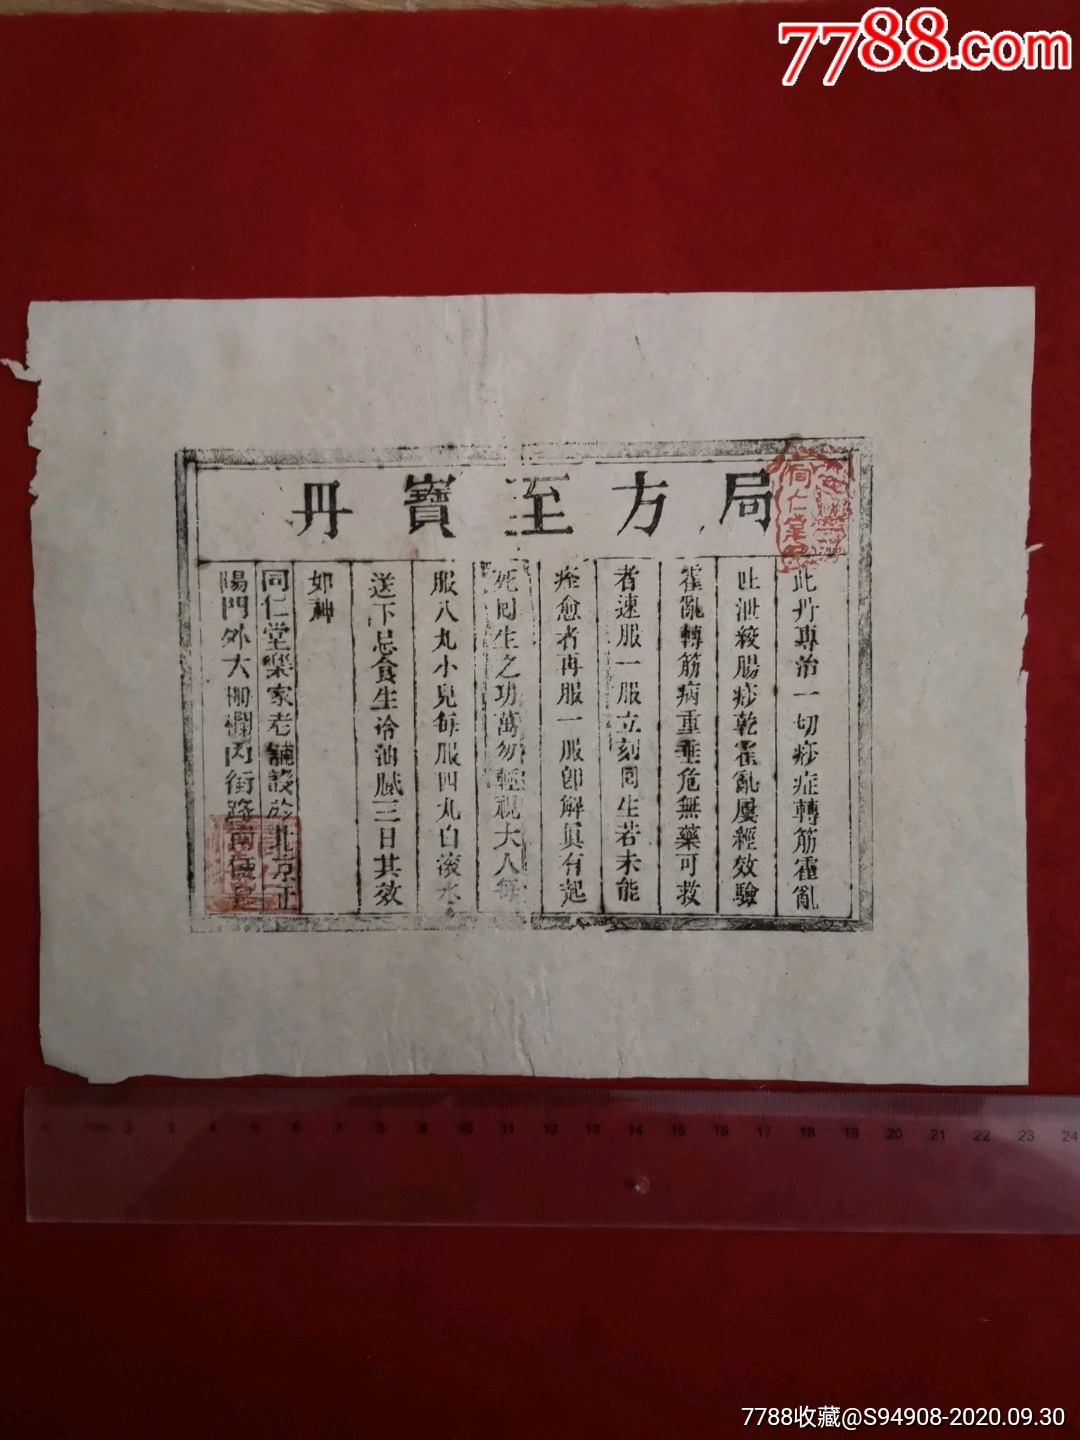 7788.com
局方至寶丹
此丹專治一切痧症轉筋霍亂
吐泄絞腸痧乾霍亂屢經效驗
霍亂轉筋病重垂危無藥可救
者速服一服立刻囘生若未能
痊愈者再服一服卽解眞有起
死囘生之功萬勿輕視大人每
服八丸小兒每服四丸白滾水
送下忌食生冷油膩三日其效
如神
同仁堂樂家老舖設於北京正
陽門外大柵欄內街路南便是
同仁堂
2 3 4 5 6 7 8 9 10 11 12 13 14 15 16 17 18 19 20 21 22 23 24
7788收藏@S94908-2020.09.30